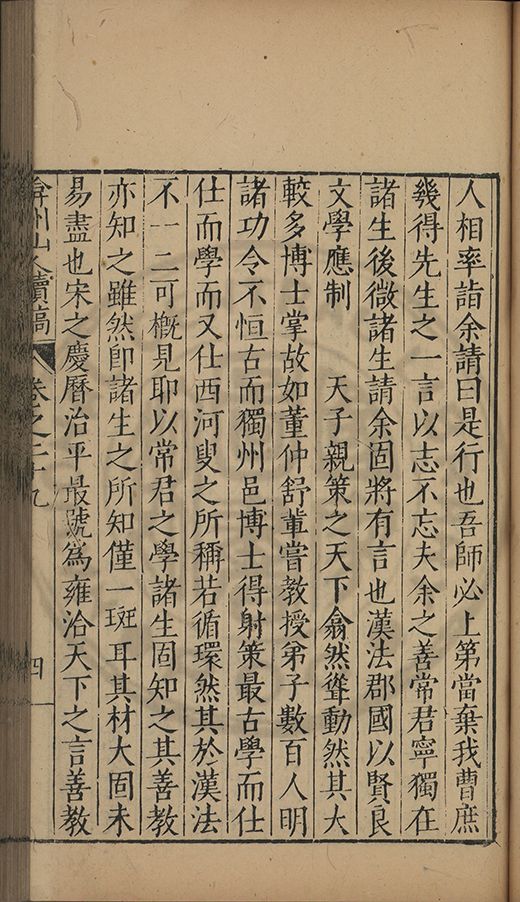 人相率詣余請曰是行也吾師必上第當棄我曹庶
幾得先生之一言以志不忘夫余之善常君寧獨在
諸生後微諸生請余固將有言也漢法郡國以賢良
文學應制　天子親策之天下翕然聳動然其大
較多博士掌故如董仲舒輩嘗教授弟子數百人明
諸功令不恒古而獨州邑博士得射策最古學而仕
仕而學而又仕西河叟之所稱若循環然其於漢法
不一二可概見耶以常君之學諸生固知之其善教
亦知之雖然卽諸生之所知僅一斑耳其材大固未
易盡也宋之慶曆治平最號為雍洽天下之言善教
弇州山人續稿
卷之二十九
四